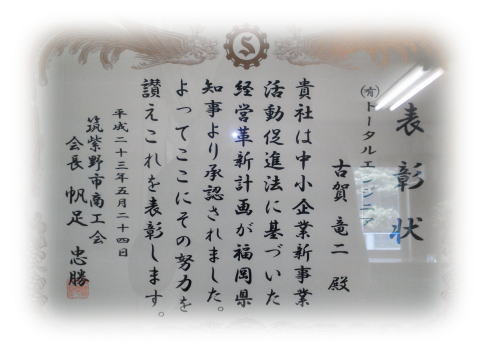 表彰状
㈲トータルエンジニア
古賀竜二殿
貴社は中小企業新事業
活動促進法に基づいた
経営革新計画が福岡県
知事より承認されました。
よってここにその努力を
讃えこれを表彰します。
平成二十三年五月二十四日
筑紫野市商工会
会長 帆足 忠勝